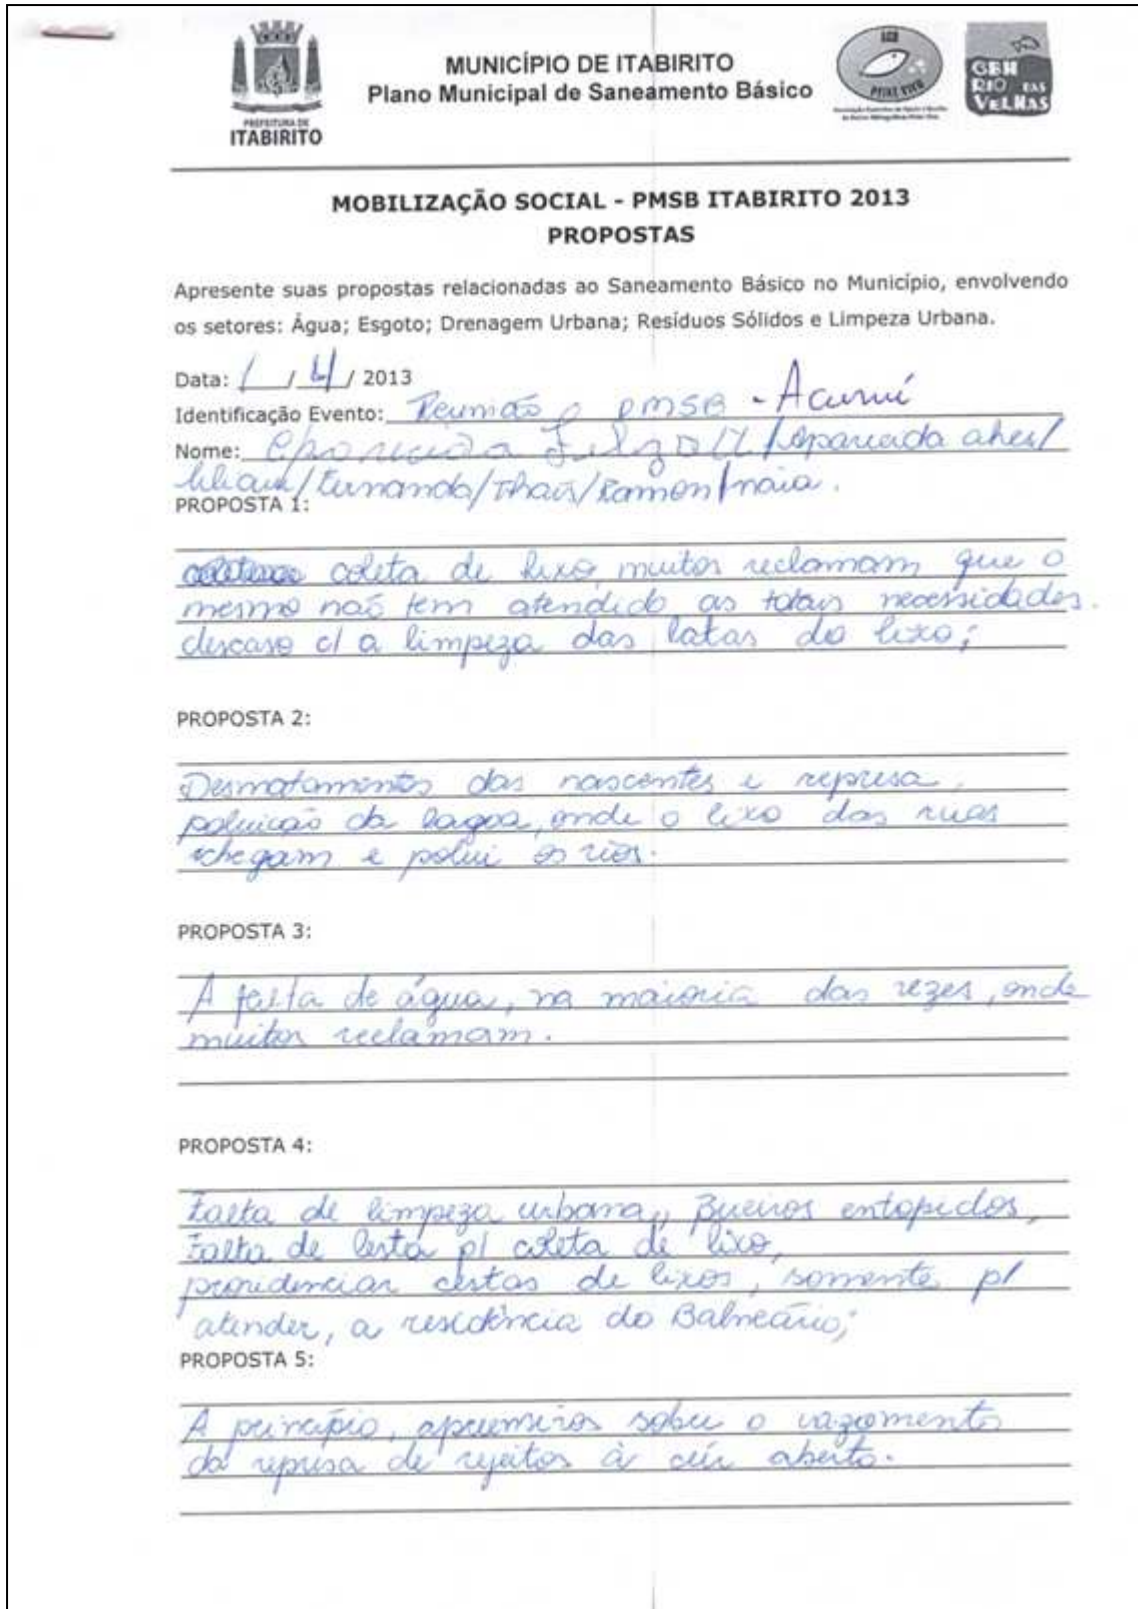 PREFEITURA DE
ITABIRITO
MUNICÍPIO DE ITABIRITO
Plano Municipal de Saneamento Básico
PEIXE VIVO
CBH
RIO DAS
VELHAS
MOBILIZAÇÃO SOCIAL - PMSB ITABIRITO 2013
PROPOSTAS
Apresente suas propostas relacionadas ao Saneamento Básico no Município, envolvendo
os setores: Água; Esgoto; Drenagem Urbana; Resíduos Sólidos e Limpeza Urbana.
Data: / 4 / 2013
Identificação Evento: Reunião PMSB - Acuruí
Nome: Aparecida
Liliane/Fernanda/Thais/Ramon/naia.
PROPOSTA 1:
coleta de lixo, muitos reclamam que o
mesmo não tem atendido as totais necessidades.
descaso c/ a limpeza das latas do lixo;
PROPOSTA 2:
Desmatamentos das nascentes e represa,
poluição da lagoa, onde o lixo das ruas
chegam e polui os rios.
PROPOSTA 3:
A falta de água, na maioria das vezes, onde
muitos reclamam.
PROPOSTA 4:
Falta de limpeza urbana, Bueiros entopidos,
Falta de p/ coleta de lixo,
providenciar cestas de lixos, somente p/
atender, a residência do Balneário;
PROPOSTA 5:
A princípio, sobre o vazamento
da represa de rejeitos à céu aberto.